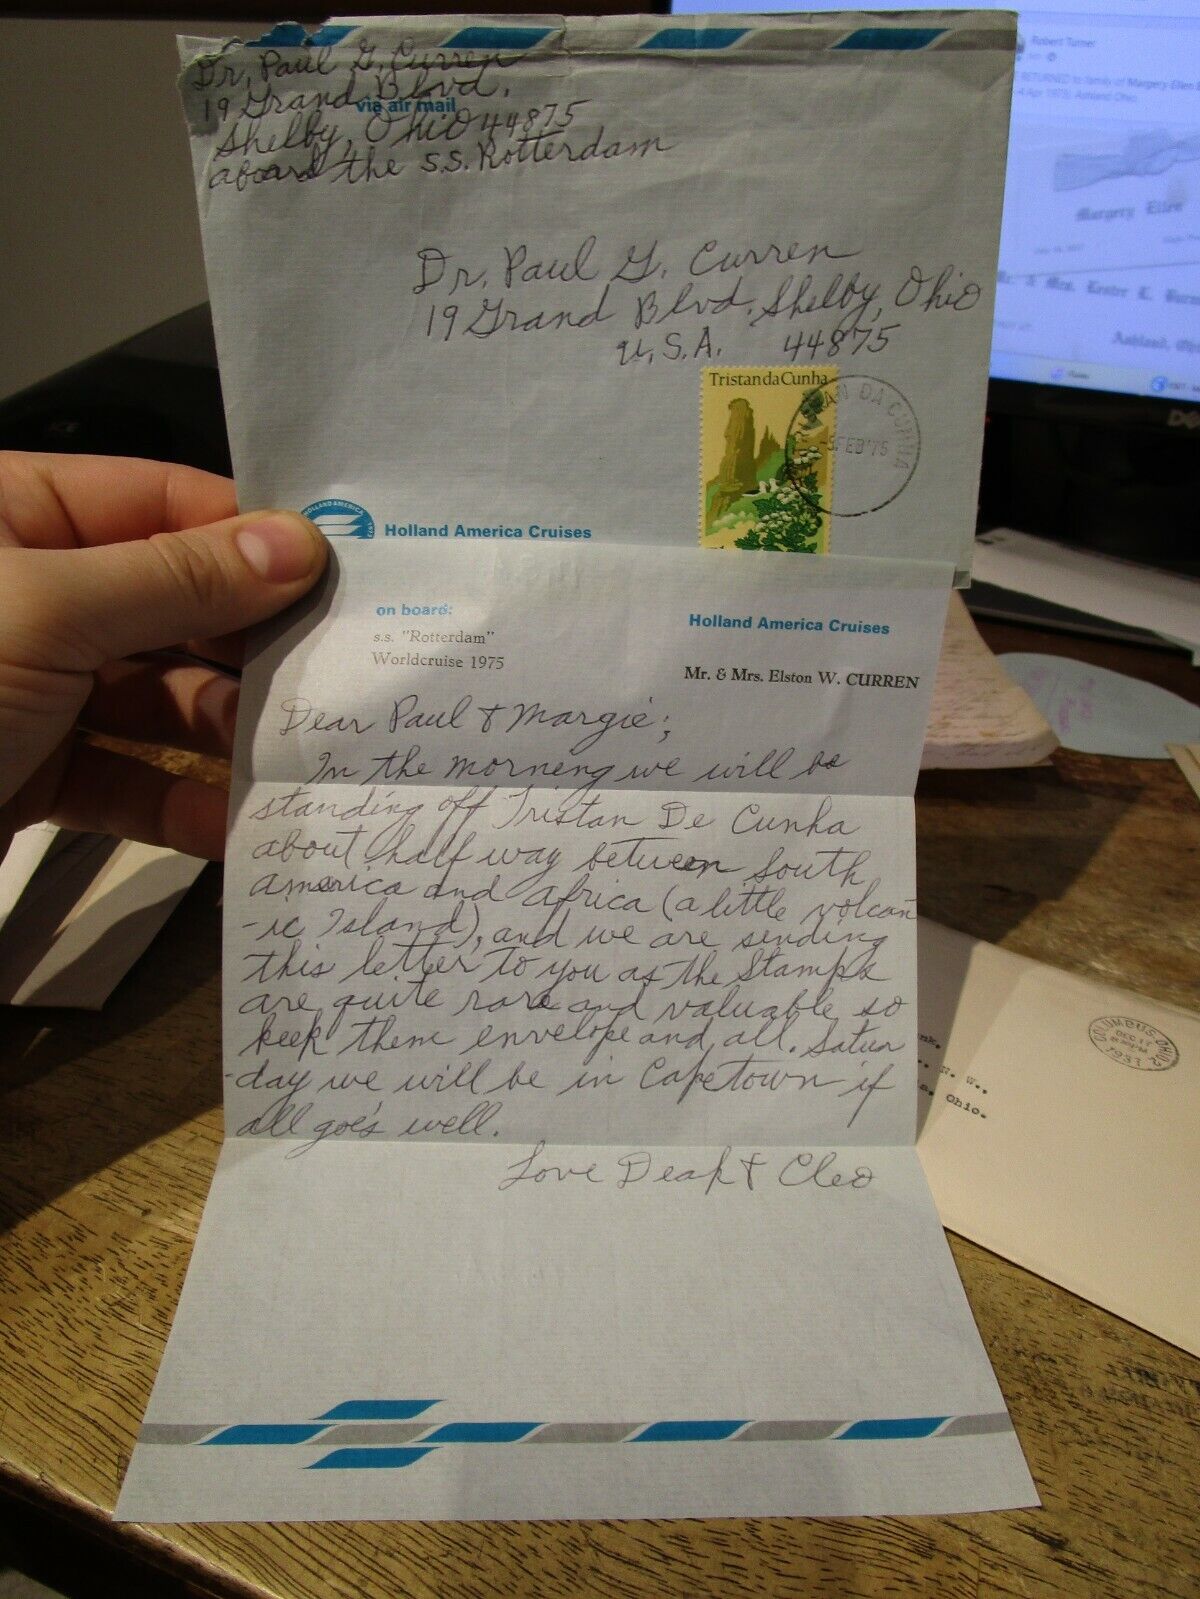 Dr. Paul G. Curren
19 Grand Blvd.
via air mail
Shelby, Ohio 44875
aboard the S.S. Rotterdam
Dr. Paul G. Curren
19 Grand Blvd. Shelby, Ohio
U.S.A. 44875
Tristan da Cunha
DA CUNHA
FEB '75
HOLLAND AMERICA
Holland America Cruises
on board:
s.s. "Rotterdam"
Worldcruise 1975
Holland America Cruises
Mr. & Mrs. Elston W. CURREN
Dear Paul & Margie;
In the morneng we will be
standing off Tristan De Cunha
about half way between South
America and Africa (a little volcan
-ic Island), and we are sending
this letter to you as the Stamps
are quite rare and valuable so
keek them envelope and all. Satur
-day we will be in Capetown if
all goe's well.
Love & Cleo
Robert Turner
RETURNED to family of Margery Ellen
Margery Ellen
Mr. & Mrs. Lester
Ashland,
COLUMBUS, OHIO
DEC 11
1933
W.,
Ohio.